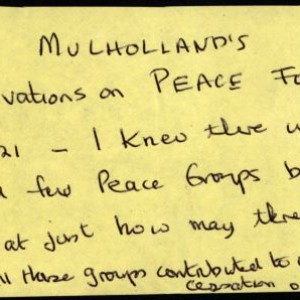 MULHOLLAND'S
vations on PEACE Fo
21 - I knew there w
few Peace Groups b
at just how may there
ll these groups contributed to
cessation o